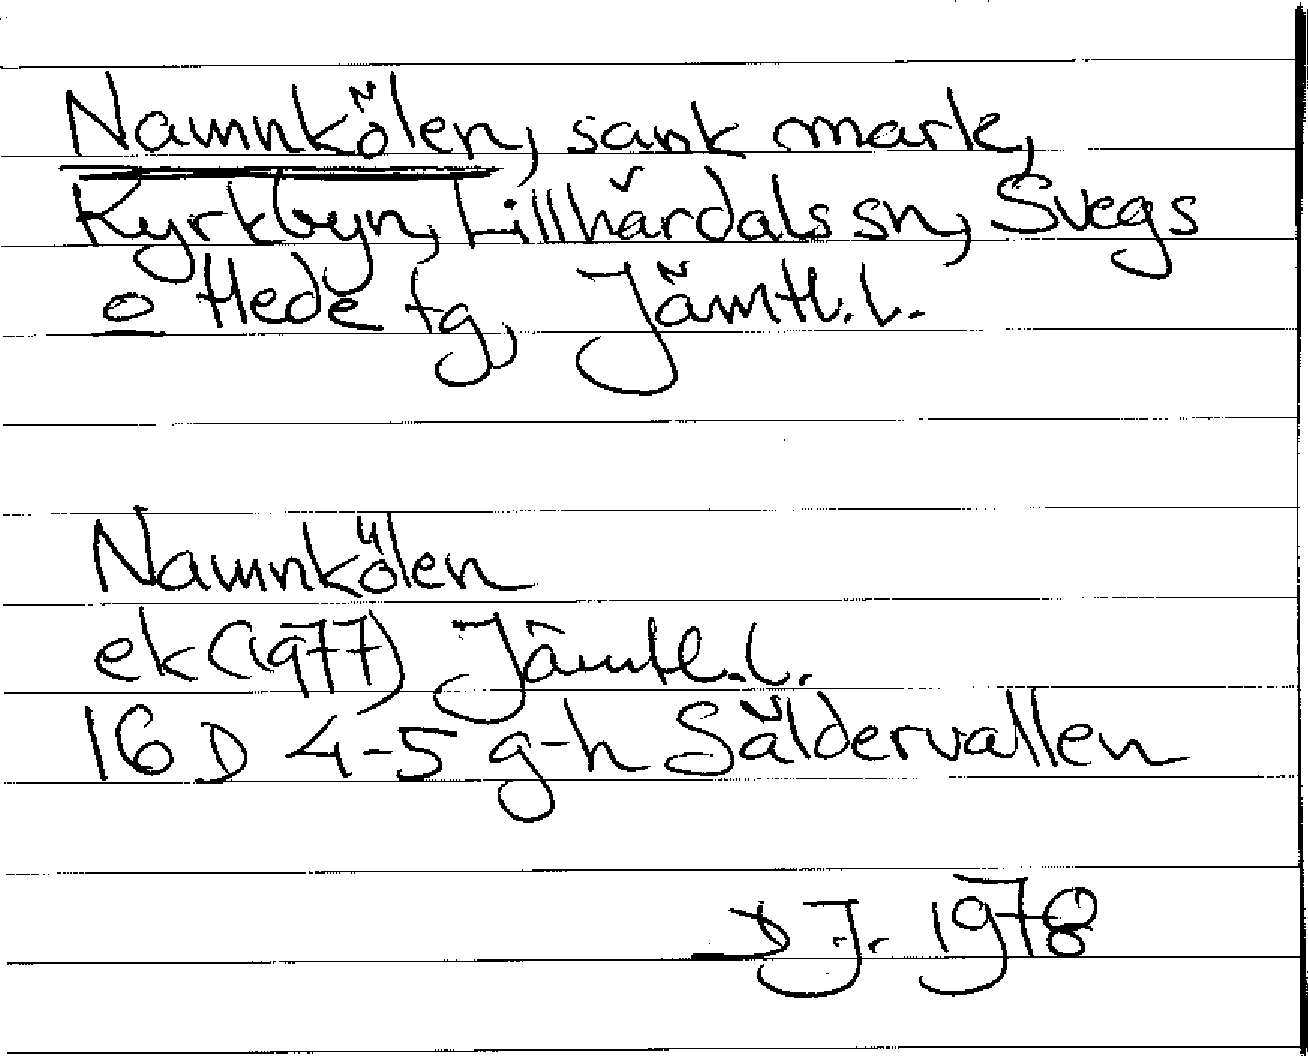 Namnkölen, sank mark,
Kyrkbyn, Lillhärdals sn, Svegs
o Hede tg, Jämtl. l.
Namnkölen
ek (1977) Jämtl. l.
16 D 4-5 g-h Säldervallen
D J. 1978